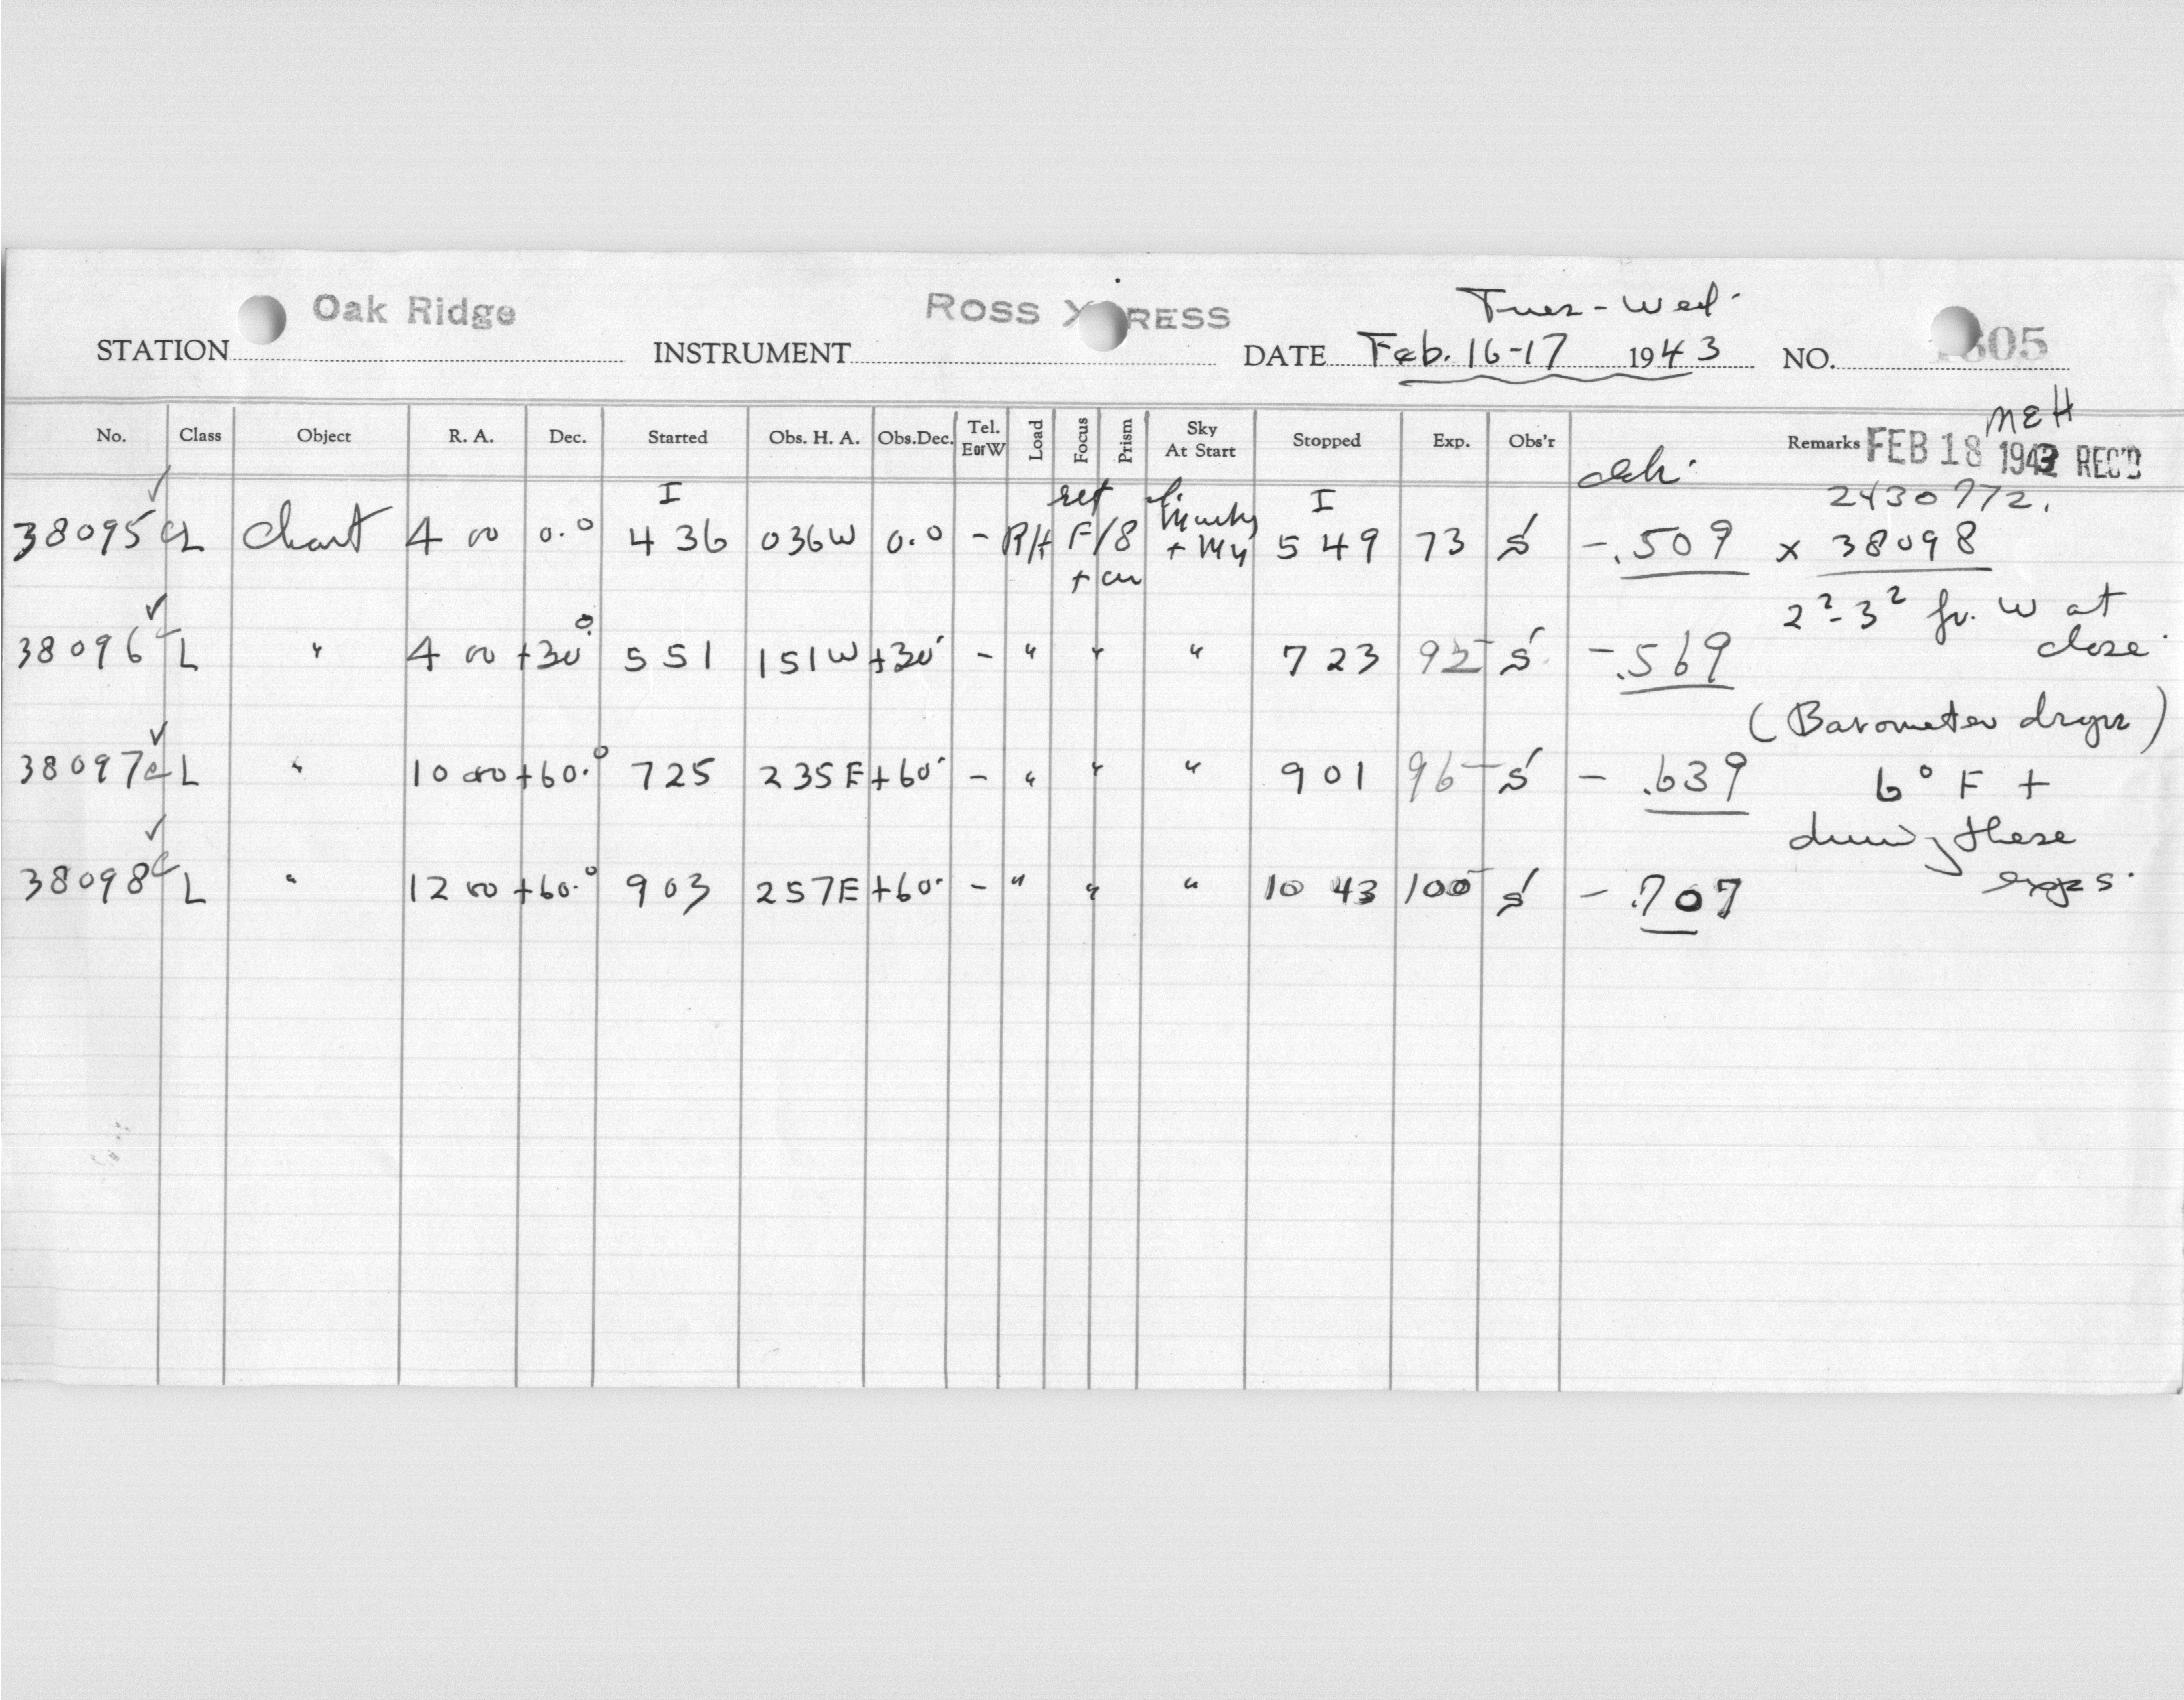 Oak Ridge ROSS X RESS Tues - Wed.
STATION INSTRUMENT DATE Feb. 16-17 1943 NO. 1605
MEH
No. Class Object R. A. Dec. Started Obs. H. A. Obs.Dec. Tel. EorW Load Focus Prism Sky At Start Stopped Exp. Obs'r Remarks FEB 18 1943 REC'D
I ret I 2430772.
38095 CL Chart 4 00 0.° 4 36 036W 0.° - R/H F/8 5 49 73 S -.509 x 38098
+ cu
2²-3² fr. W at
close.
38096 C L " 4 00 +30° 5 51 151W +30° - " " " 7 23 92 S -.569
(Barometer drops)
38097 C L " 10 00 +60.° 7 25 235E +60° - " " " 9 01 96 S -.639 6° F +
during these
38098 C L " 12 00 +60.° 9 03 257E +60° - " " " 10 43 100 S -.707 exps.